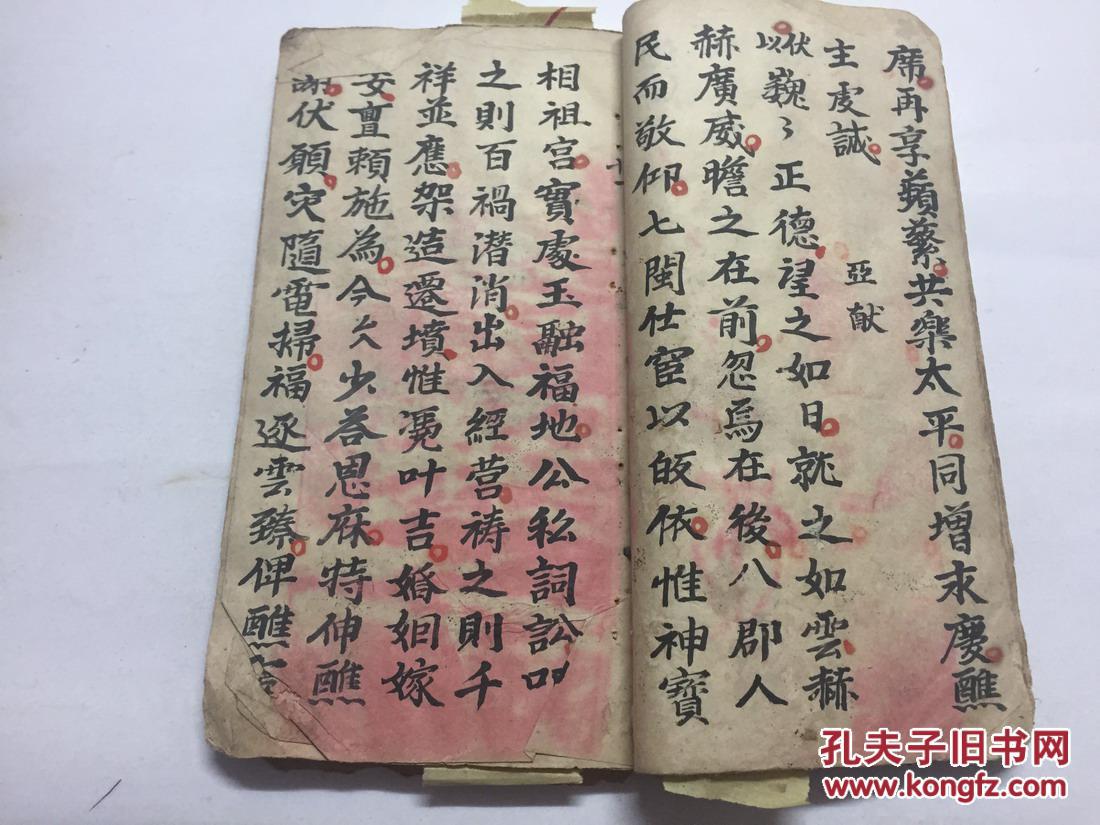 席再享蘋蘩共樂太平同增求慶醮
主虔誠
亞献
伏以巍〻正德望之如日就之如雲赫
赫廣威瞻之在前忽焉在後八郡人
民而敬仰七閩仕宦以皈依惟神寶
相祖宮寶處玉融福地公私詞訟叩
之則百禍潛消出入經營祷之則千
祥並應架造遷墳惟凴叶吉婚姻嫁
女亶賴施為今久少荅恩庥特伸醮
謝伏願灾隨電掃福逐雲臻俾醮
孔夫子旧书网
www.kongfz.com